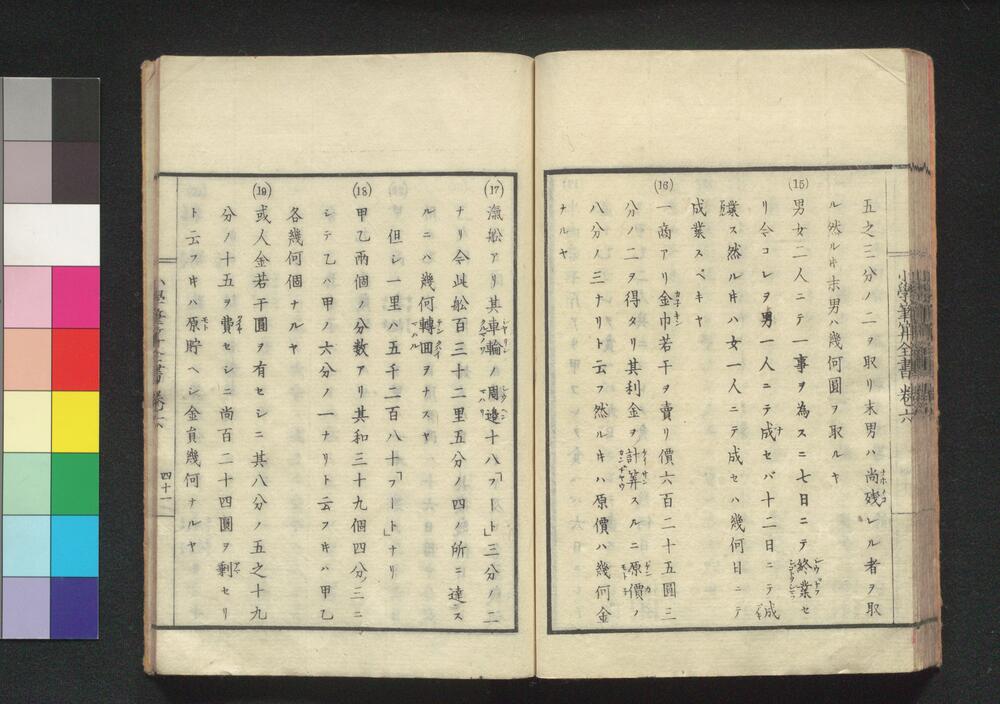 五之三分ノ二ヲ取リ末男ハ尚殘レル者ヲ取
ル然ルキ末男ハ幾何圓ヲ取ルヤ
(15) 男女二人ニテ一事ヲ為スニ七日ニテ終業セ
リ今コレヲ男一人ニテ成セバ十二日ニテ成
業ス然ルキハ女一人ニテ成セハ幾何日ニテ
成業スベキヤ
(16) 一商アリ金巾若干ヲ賣リ價六百二十五圓三
分ノ二ヲ得タリ其利金ヲ計算スルニ原價ノ
八分ノ三ナリト云フ然ルキハ原價ハ幾何金
ナルヤ
小學筆算全書 卷六
(17) 滊舩アリ其車輪ノ周邊十八「フート」三分ノ二
ナリ今此舩百三十二里五分ノ四ノ所ニ達ス
ルニハ幾何轉回ヲナスヤ
但シ一里ハ五千二百八十「フート」ナリ
(18) 甲乙兩個ノ分数アリ其和三十九個四分ノ三ニ
シテ乙ハ甲ノ六分ノ一ナリト云フキハ甲乙
各幾何個ナルヤ
(19) 或人金若干圓ヲ有セシニ其八分ノ五之十九
分ノ十五ヲ費セシニ尚百二十四圓ヲ剩セリ
ト云フキハ原貯ヘシ金員幾何ナルヤ
四十一